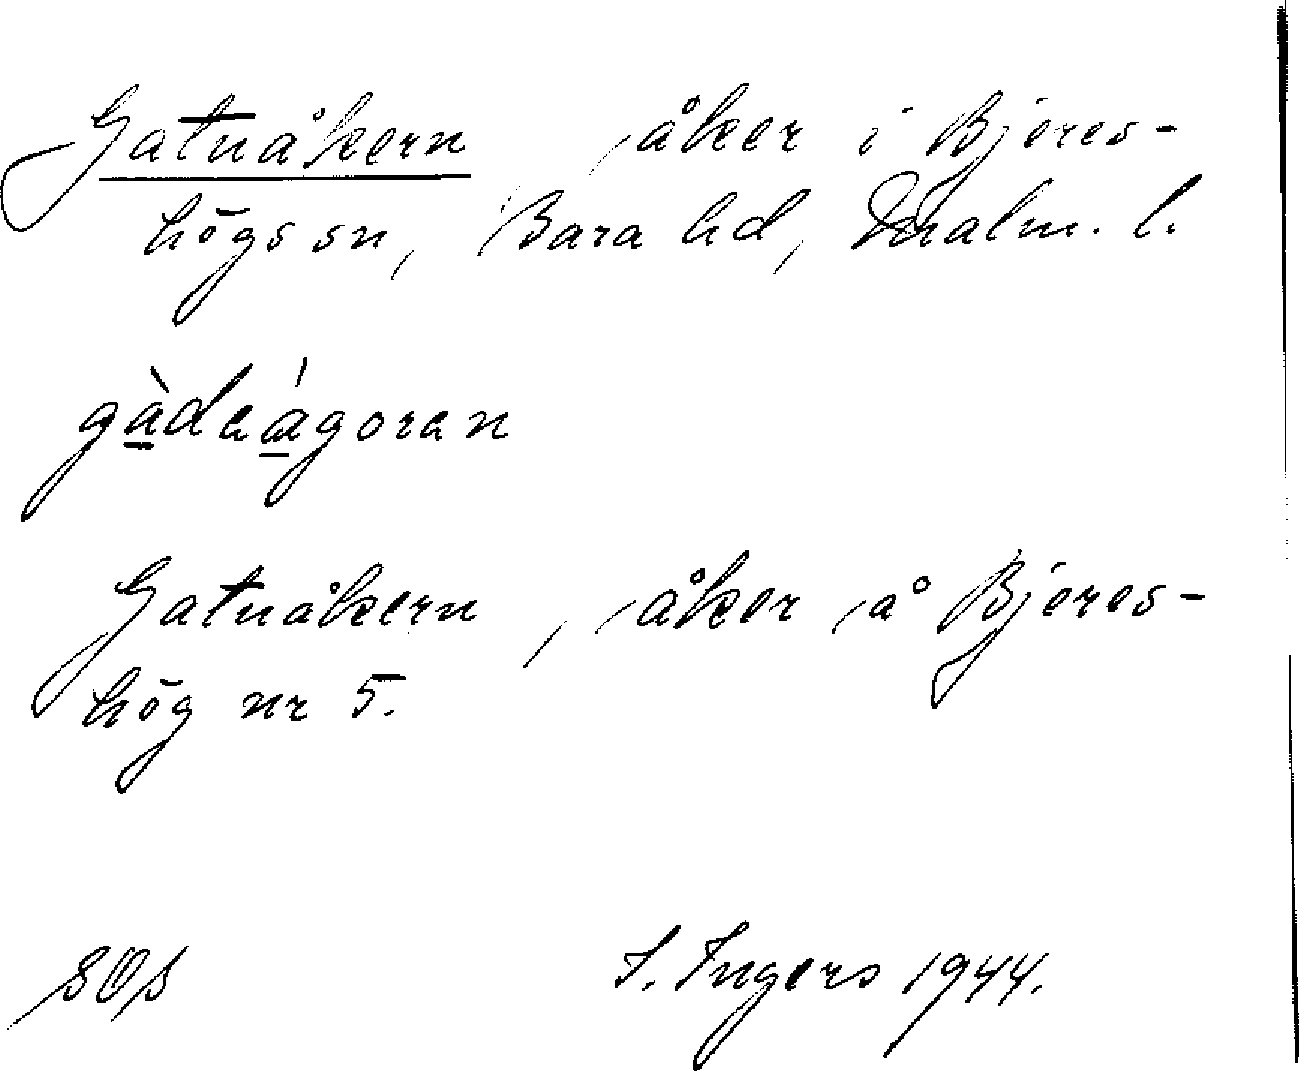 Gatuåkern, åker i Bjeres-
högs sn, Bara hd, Malm. l.
gàdeágoren
Gatuåkern, åker å Bjeres-
hög nr 5.
SOS I. Ingers 1944.